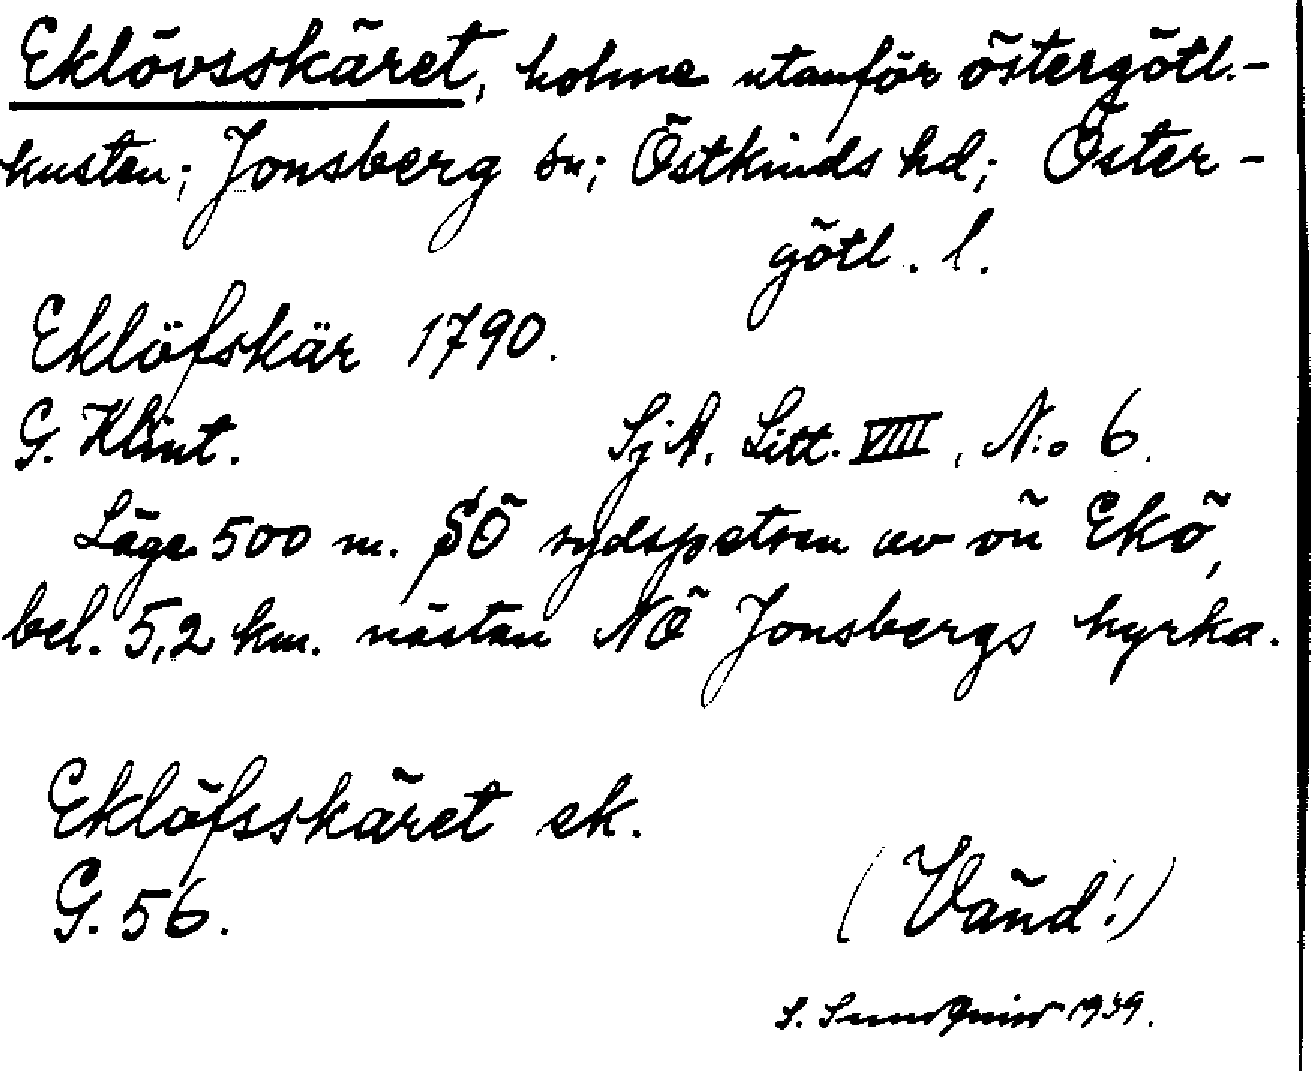 Eklövsskäret, holme utanför östergötl.-
kusten; Jonsberg sn; Östkinds hd; Öster-
götl. l.
Eklöfskär 1790.
G. Klint. SjA. Litt. VIII, N:o 6.
Läge 500 m. SÖ sydspetsen av ön Ekö,
bel. 5,2 km. nästan NÖ Jonsbergs kyrka.
Eklöfsskäret ek.
G. 56.
(Vänd!)
S. 1939.